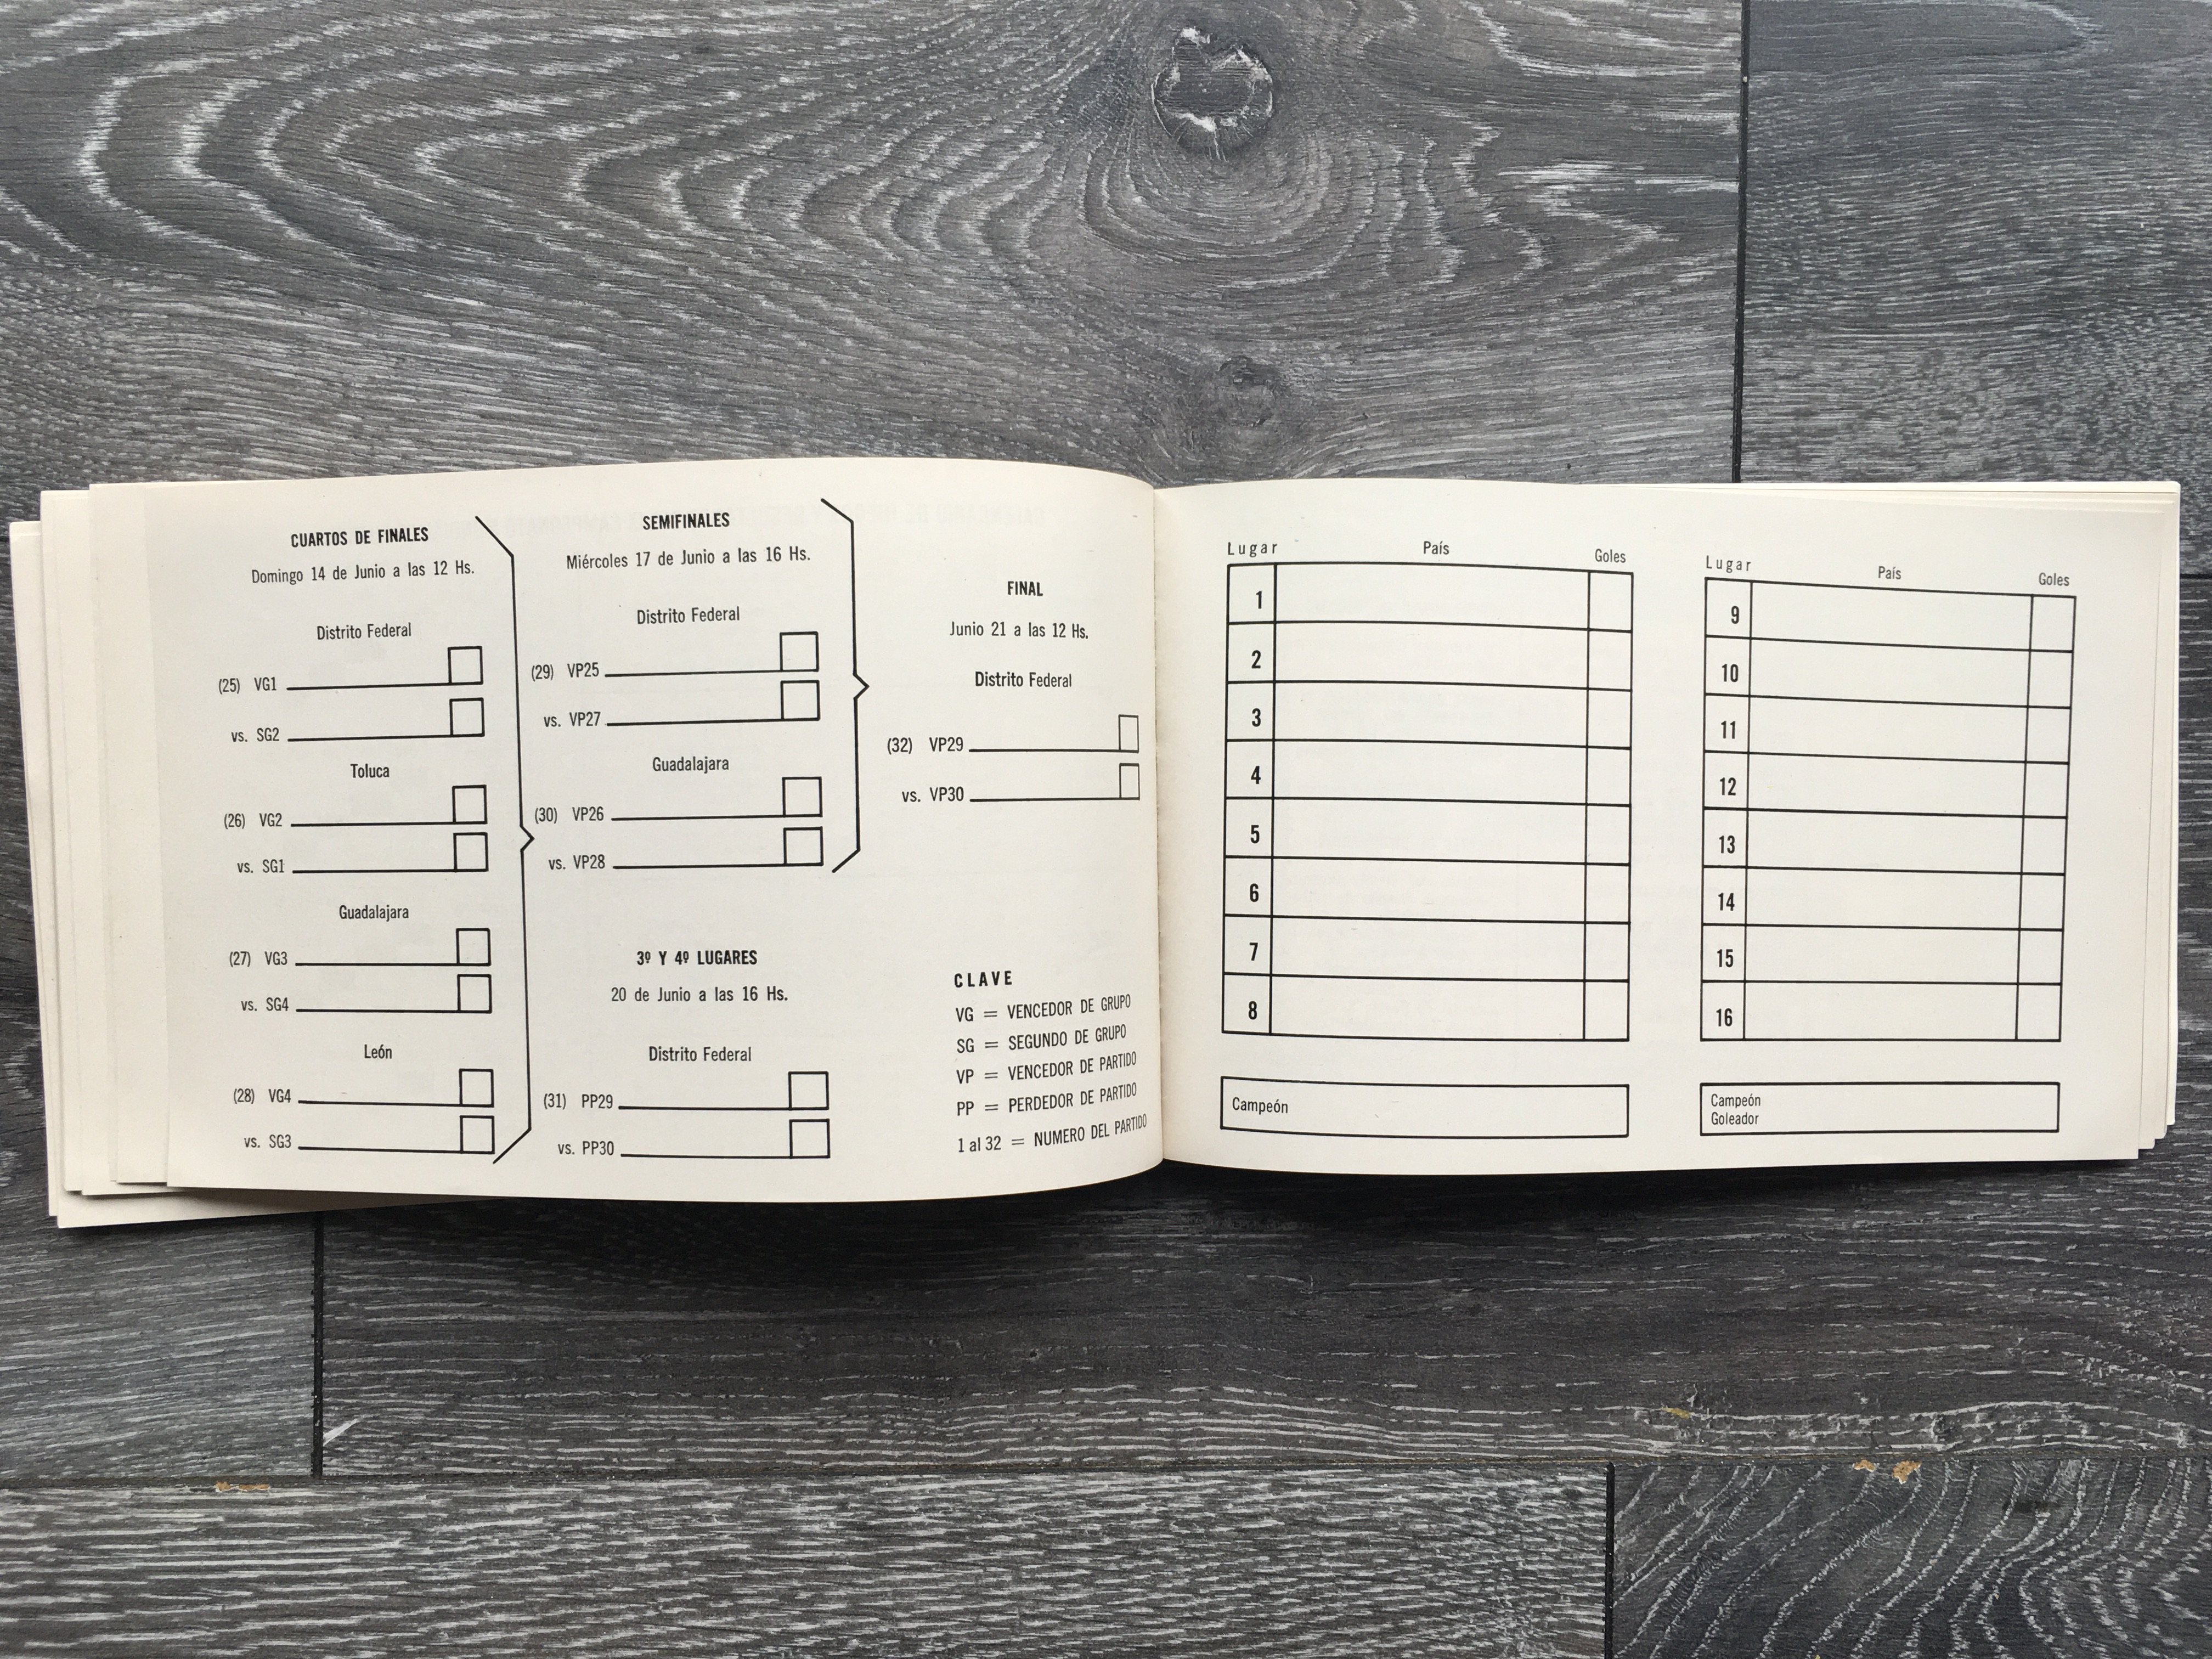 CUARTOS DE FINALES
Domingo 14 de Junio a las 12 Hs.
Distrito Federal
(25) VG1
vs. SG2
Toluca
(26) VG2
vs. SG1
Guadalajara
(27) VG3
vs. SG4
León
(28) VG4
vs. SG3
SEMIFINALES
Miércoles 17 de Junio a las 16 Hs.
Distrito Federal
(29) VP25
vs. VP27
Guadalajara
(30) VP26
vs. VP28
3º Y 4º LUGARES
20 de Junio a las 16 Hs.
Distrito Federal
(31) PP29
vs. PP30
FINAL
Junio 21 a las 12 Hs.
Distrito Federal
(32) VP29
vs. VP30
CLAVE
VG = VENCEDOR DE GRUPO
SG = SEGUNDO DE GRUPO
VP = VENCEDOR DE PARTIDO
PP = PERDEDOR DE PARTIDO
1 al 32 = NUMERO DEL PARTIDO
Lugar País Goles
1
2
3
4
5
6
7
8
Campeón
Lugar País Goles
9
10
11
12
13
14
15
16
Campeón
Goleador